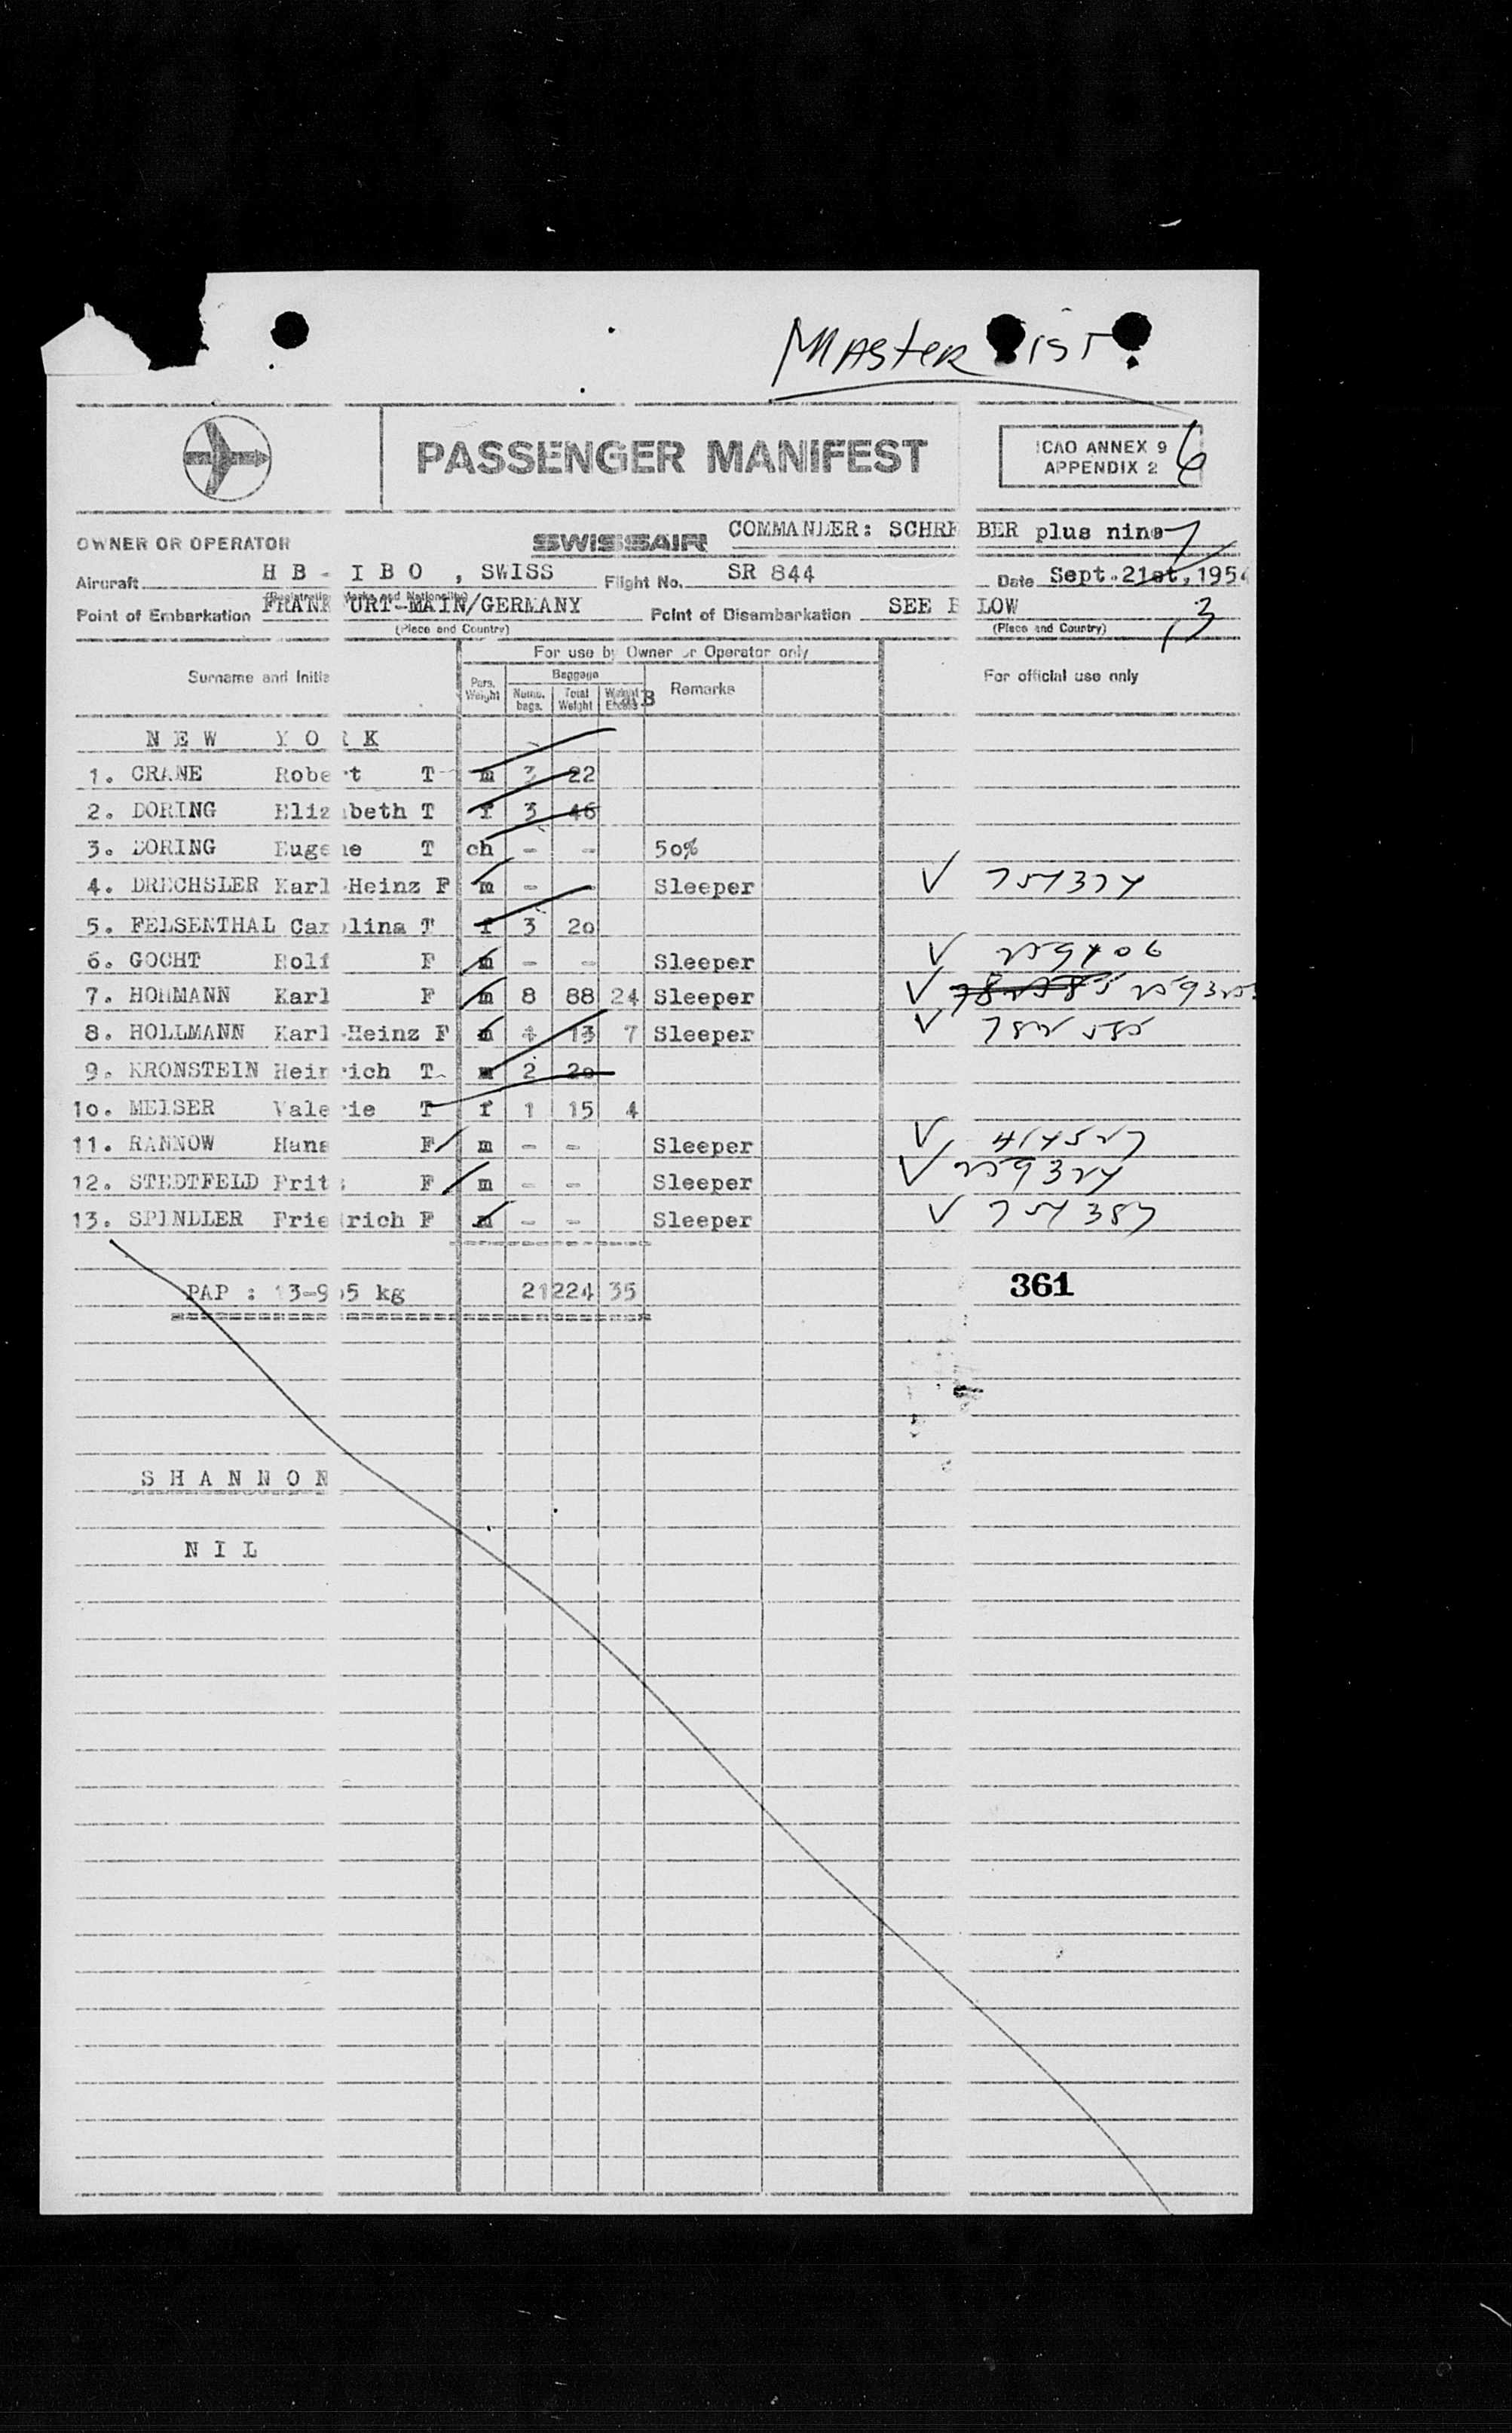 Master List
PASSENGER MANIFEST
ICAO ANNEX 9
APPENDIX 2
6
OWNER OR OPERATOR SWISSAIR COMMANDER: SCHREIBER plus nine
7
Aircraft H B - I B O , SWISS Flight No. SR 844 Date Sept. 21st, 1954
(Registration Marks and Nationality)
Point of Embarkation FRANKFURT-MAIN/GERMANY Point of Disembarkation SEE BELOW
(Place and Country) (Place and Country)
13
For use by Owner or Operator only
Surname and Initia Pars. Weight Baggage Remarks For official use only
Numb. bags. Total Weight Weight Excess B
N E W Y O R K
1. CRANE Robert T m 3 22
2. DORING Elizabeth T f 3 46
3. DORING Eugene T ch - - 50%
4. DRECHSLER Karl-Heinz F m - - Sleeper V 754374
5. FELSENTHAL Carolina T f 3 20
6. GOCHT Rolf F m - - Sleeper V 259406
7. HOHMANN Karl F m 8 88 24 Sleeper V 782585
8. HOLLMANN Karl-Heinz F m 1 13 7 Sleeper V 782585
9. KRONSTEIN Heinrich T m 2 20
10. MEISER Valerie T f 1 15 4
11. RANNOW Hans F m - - Sleeper V 414527
12. STEDTFELD Fritz F m - - Sleeper V 259324
13. SPINDLER Friedrich F m - - Sleeper V 754387
PAP : 13-905 kg 21 224 35
361
S H A N N O N
N I L